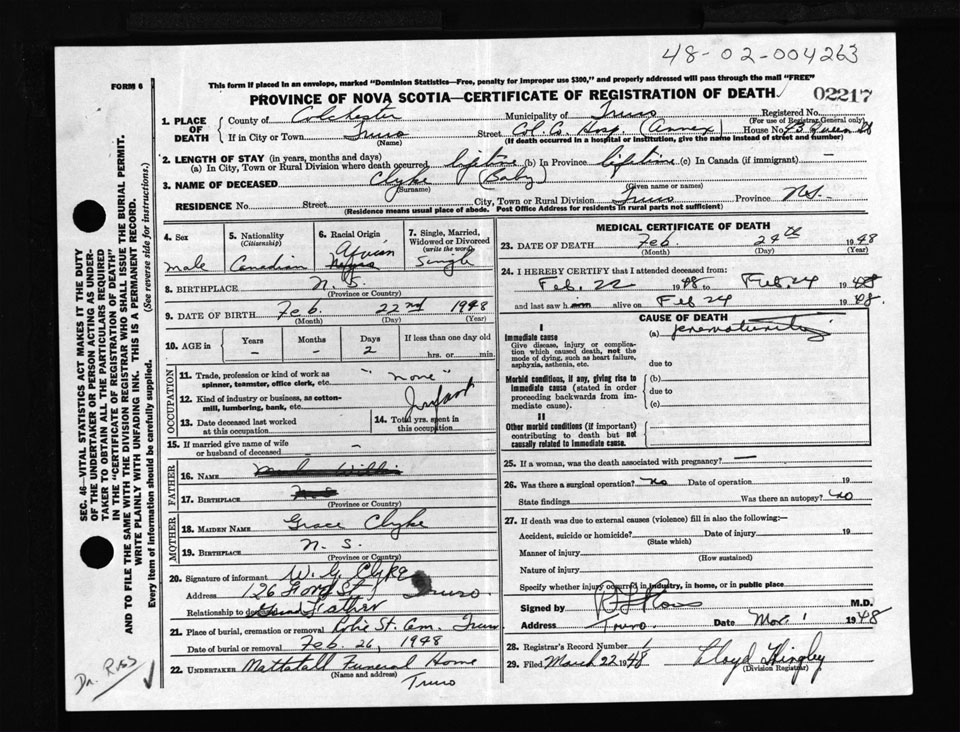 48-02-004263
FORM 6
This form if placed in an envelope, marked "Dominion Statistics—Free, penalty for improper use $300," and properly addressed will pass through the mail "FREE"
PROVINCE OF NOVA SCOTIA—CERTIFICATE OF REGISTRATION OF DEATH
02217
1. PLACE OF DEATH
County of Colchester Municipality of Truro Registered No.
(For use of Registrar General only)
If in City or Town Truro Street Col. Co. Hosp. (Annex) House No. 43 Queen St
(Name) (If death occurred in a hospital or institution, give the name instead of street and number)
2. LENGTH OF STAY (in years, months and days)
(a) In City, Town or Rural Division where death occurred lifetime (b) In Province lifetime (c) In Canada (if immigrant) —
3. NAME OF DECEASED Clyke (Baby)
(Surname) (Given name or names)
RESIDENCE No. Street City, Town or Rural Division Truro Province N.S.
(Residence means usual place of abode. Post Office Address for residents in rural parts not sufficient)
4. Sex
male
5. Nationality
(Citizenship)
Canadian
6. Racial Origin
African
Negro
7. Single, Married, Widowed or Divorced
(write the word)
Single
8. BIRTHPLACE N. S.
(Province or Country)
9. DATE OF BIRTH Feb. 22nd 1948
(Month) (Day) (Year)
10. AGE in
Years Months Days If less than one day old
- - 2 hrs. or min.
OCCUPATION
11. Trade, profession or kind of work as spinner, teamster, office clerk, etc. "none"
12. Kind of industry or business, as cotton-mill, lumbering, bank, etc. Infant
13. Date deceased last worked at this occupation
14. Total yrs. spent in this occupation
15. If married give name of wife or husband of deceased —
FATHER
16. NAME
17. BIRTHPLACE N S
(Province or Country)
MOTHER
18. MAIDEN NAME Grace Clyke
19. BIRTHPLACE N. S.
(Province or Country)
20. Signature of informant W. G. Clyke
Address 126 Ford St Truro
Relationship to deceased Grand Father
21. Place of burial, cremation or removal Robie St. Cem. Truro
Date of burial or removal Feb. 26, 1948
22. UNDERTAKER Mattatall Funeral Home
(Name and address)
Truro
MEDICAL CERTIFICATE OF DEATH
23. DATE OF DEATH Feb. 24th 1948
(Month) (Day) (Year)
24. I HEREBY CERTIFY that I attended deceased from:
Feb. 22 1948 to Feb. 24 1948
and last saw h alive on Feb 24 1948.
CAUSE OF DEATH
I
Immediate cause
Give disease, injury or complication which caused death, not the mode of dying, such as heart failure, asphyxia, asthenia, etc.
(a) prematurity
due to
Morbid conditions, if any, giving rise to immediate cause (stated in order proceeding backwards from immediate cause).
(b)
due to
(c)
II
Other morbid conditions (if important) contributing to death but not causally related to immediate cause.
25. If a woman, was the death associated with pregnancy? —
26. Was there a surgical operation? no Date of operation 19
State findings Was there an autopsy? no
27. If death was due to external causes (violence) fill in also the following:—
Accident, suicide or homicide? Date of injury 19
(State which)
Manner of injury
(How sustained)
Nature of injury
Specify whether injury occurred in industry, in home, or in public place
Signed by Ross M.D.
Address Truro Date Mar 1 1948
28. Registrar's Record Number
29. Filed March 22 1948 Lloyd Hingley
(Division Registrar)
SEC. 46—VITAL STATISTICS ACT MAKES IT THE DUTY
OF THE UNDERTAKER OR PERSON ACTING AS UNDER-
TAKER TO OBTAIN ALL THE PARTICULARS REQUIRED
IN THE "CERTIFICATE OF REGISTRATION OF DEATH"
AND TO FILE THE SAME WITH THE DIVISION REGISTRAR WHO SHALL ISSUE THE BURIAL PERMIT.
WRITE PLAINLY WITH UNFADING INK. THIS IS A PERMANENT RECORD.
Every item of information should be carefully supplied. (See reverse side for instructions.)
Dr. Ross